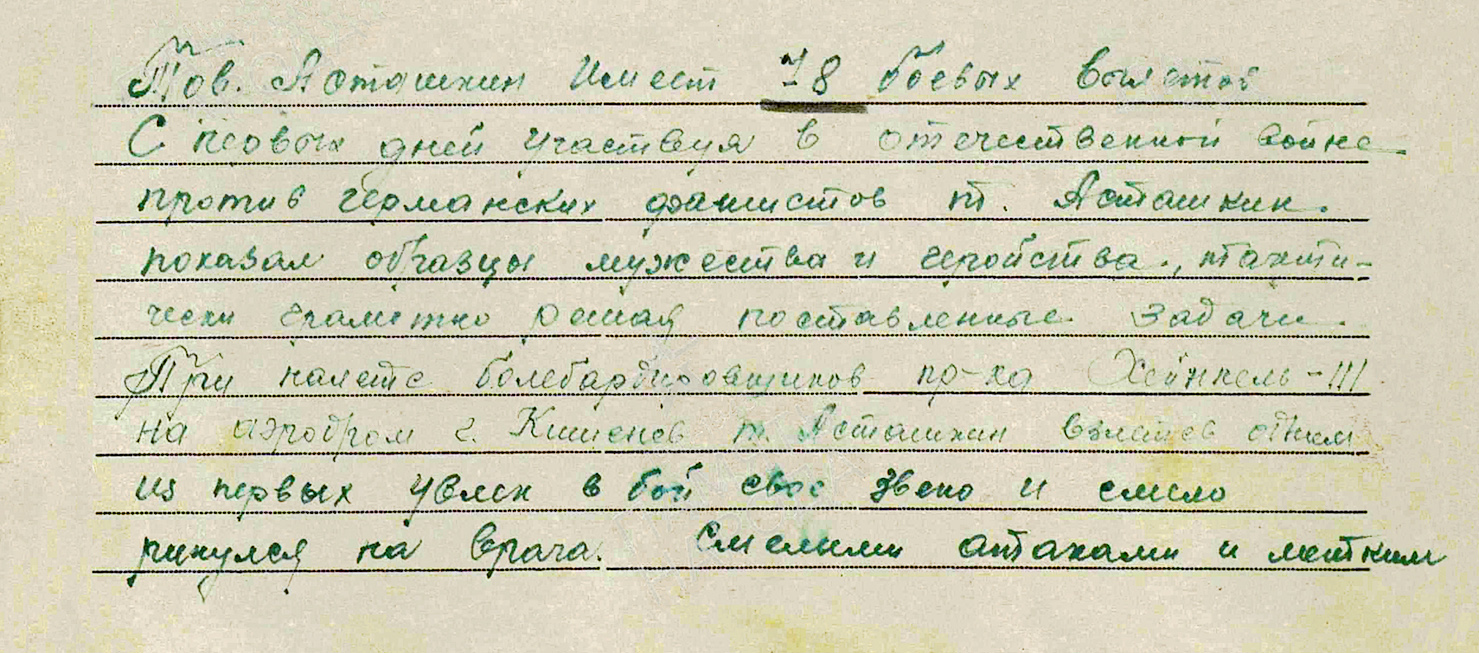 Тов. Асташкин имеет 78 боевых вылетов
С первых дней участвуя в отечественной войне
против германских фашистов т. Асташкин.
показал образцы мужества и геройства, такти-
чески грамотно решая поставленные задачи.
При налете бомбардировщиков пр-ка Хейнкель-111
на аэродром г. Кишенев т. Асташкин взлетев одним
из первых увлек в бой свое звено и смело
ринулся на врага. Смелыми атаками и метким